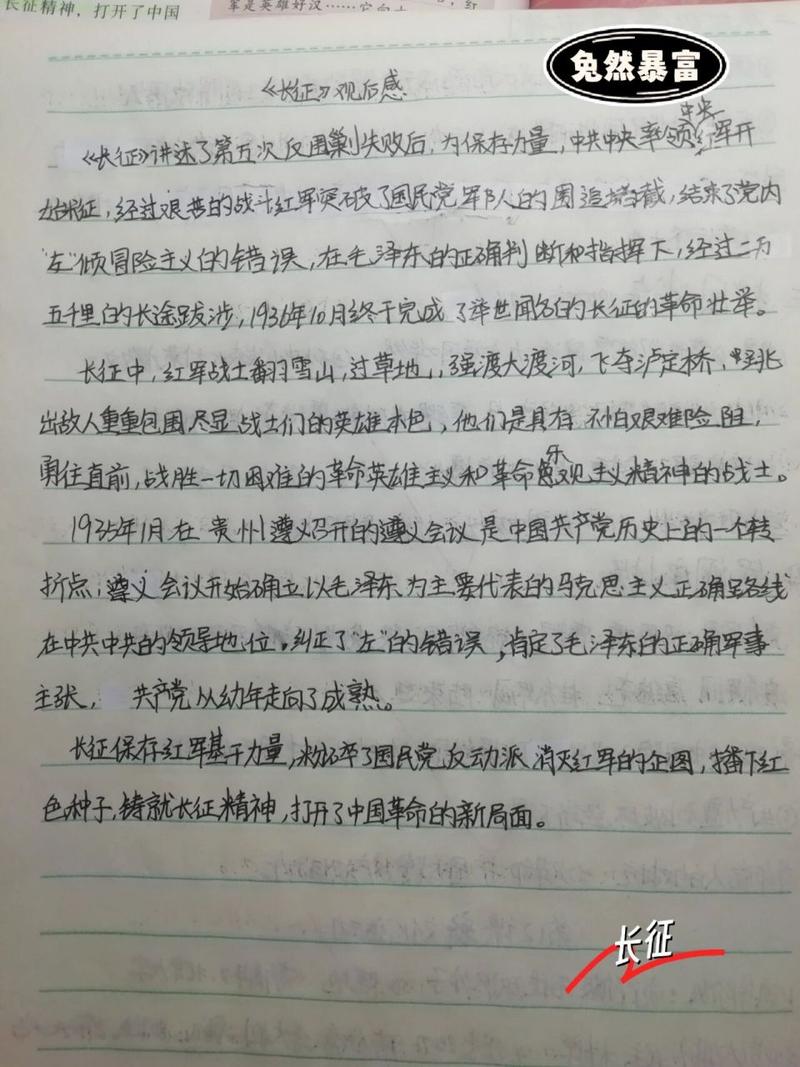 长征精神，打开了中国
军是英雄好汉……它向
兔然暴富
《长征》观后感
《长征》讲述了第五次反围剿失败后，为保存力量，中共中央率领中央红军开
始长征，经过艰苦的战斗红军突破了国民党军队的围追堵截，结束了党内
“左”倾冒险主义的错误，在毛泽东的正确判断和指挥下，经过二万
五千里的长途跋涉，1936年10月终于完成了举世闻名的长征的革命壮举。
长征中，红军战士翻雪山，过草地，强渡大渡河，飞夺泸定桥，跳
出敌人重重包围尽显战士们的英雄本色，他们是具有不怕艰难险阻，
勇往直前，战胜一切困难的革命英雄主义和革命乐观主义精神的战士。
1935年1月在贵州遵义召开的遵义会议是中国共产党历史上的一个转
折点，遵义会议开始确立以毛泽东为主要代表的马克思主义正确路线
在中共中共的领导地位。纠正了“左”的错误，肯定了毛泽东的正确军事
主张，共产党从幼年走向了成熟。
长征保存红军基干力量，粉碎了国民党反动派消灭红军的企图，播下红
色种子，铸就长征精神，打开了中国革命的新局面。
长征